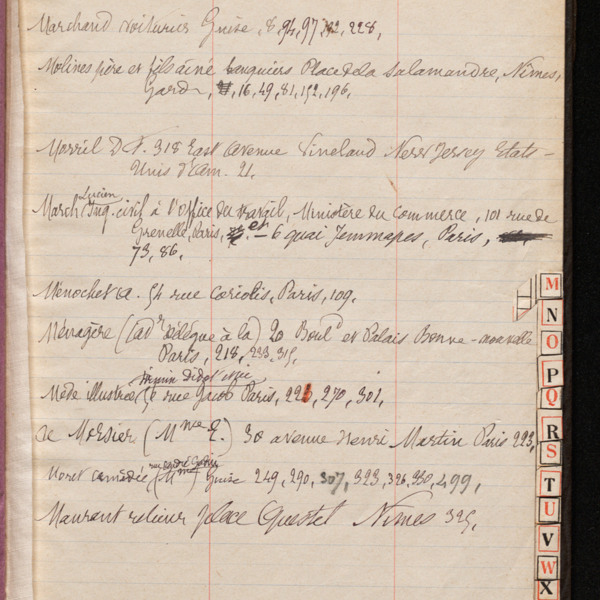 Marchand voiturier Guise, 8, 94, 97, 228,
Molines père et fils ainé banquiers Place de la Salamandre, Nîmes,
Gard, 16, 49, 81, 152, 196,
Morril D. F. 318 East avenue Vineland New Jersey Etats-
Unis d'Am. 21.
Lucien
March Ing. civil à l'Office du travail, Ministère du Commerce, 101 rue de
Grenelle, Paris, et 6 quai Jemmapes, Paris,
73, 86,
Menochet A. 54 rue Coriolis, Paris, 109,
Ménagère (adr délégué à la) 20 Boulᵈ et Palais Bonne-nouvelle
Paris, 218, 233, 315,
Firmin Didot et Cie
Mode illustrée 56 rue Jacob Paris, 223, 270, 301,
de Morsier (Mme E.) 30 avenue Henri Martin Paris 223,
rue André Godin
Moret (Mme) Guise 249, 290, 307, 323, 326, 330, 499,
Maurant relieur place Questel Nîmes 325,
M
N
O
P
Q
R
S
T
U
V
W
X